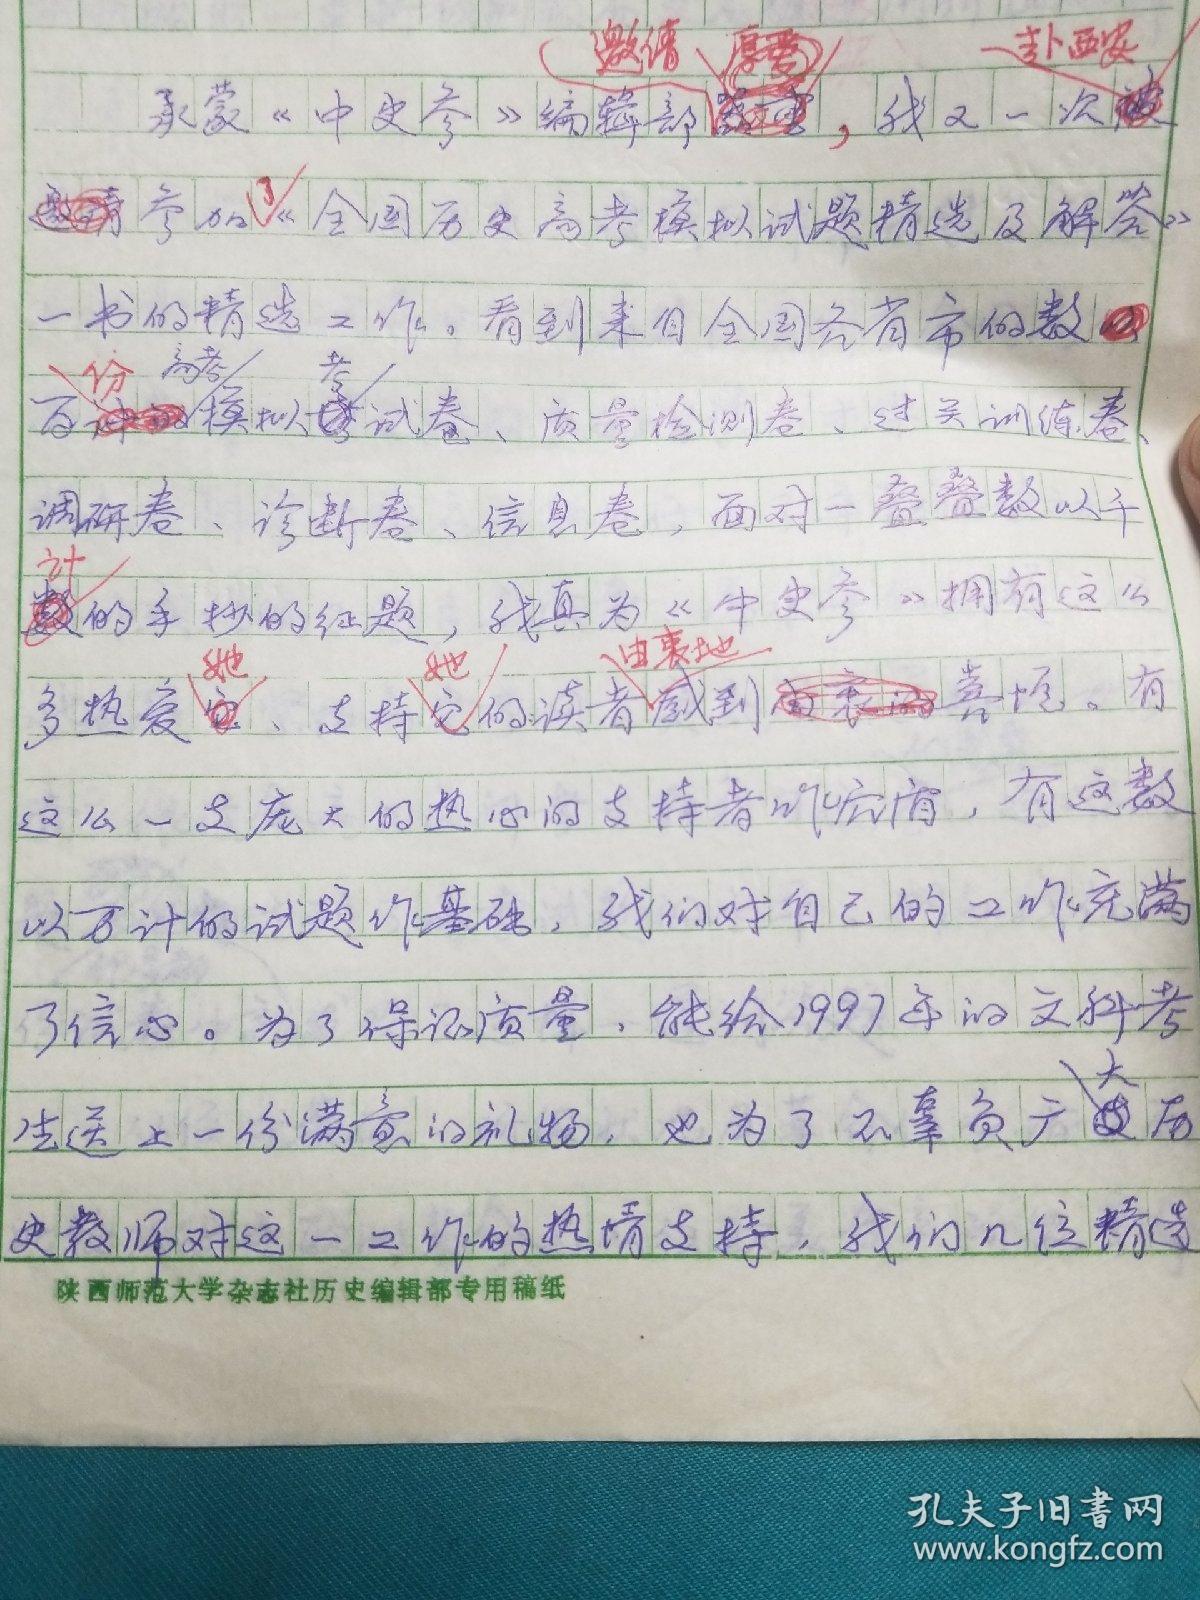 邀请 厚爱 赴西安
承蒙《中史参》编辑部,我又一次被
邀请参加了《全国历史高考模拟试题精选及解答》
一书的精选工作。看到来自全国各省市的数以
份 高考 考
百模拟试卷、质量检测卷、过关训练卷、
调研卷、诊断卷、信息卷,面对一叠叠数以千
计
的手抄的征题,我真为《中史参》拥有这么
她 她 由衷地
多热爱它、支持它的读者感到由衷的喜悦。有
这么一支庞大的热心的支持者作后盾,有这数
以万计的试题作基础,我们对自己的工作充满
了信心。为了保证质量,能给1997年的文科考
大
生送上一份满意的礼物,也为了不辜负广历
史教师对这一工作的热情支持,我们几位精选
陕西师范大学杂志社历史编辑部专用稿纸
孔夫子旧书网
www.kongfz.com